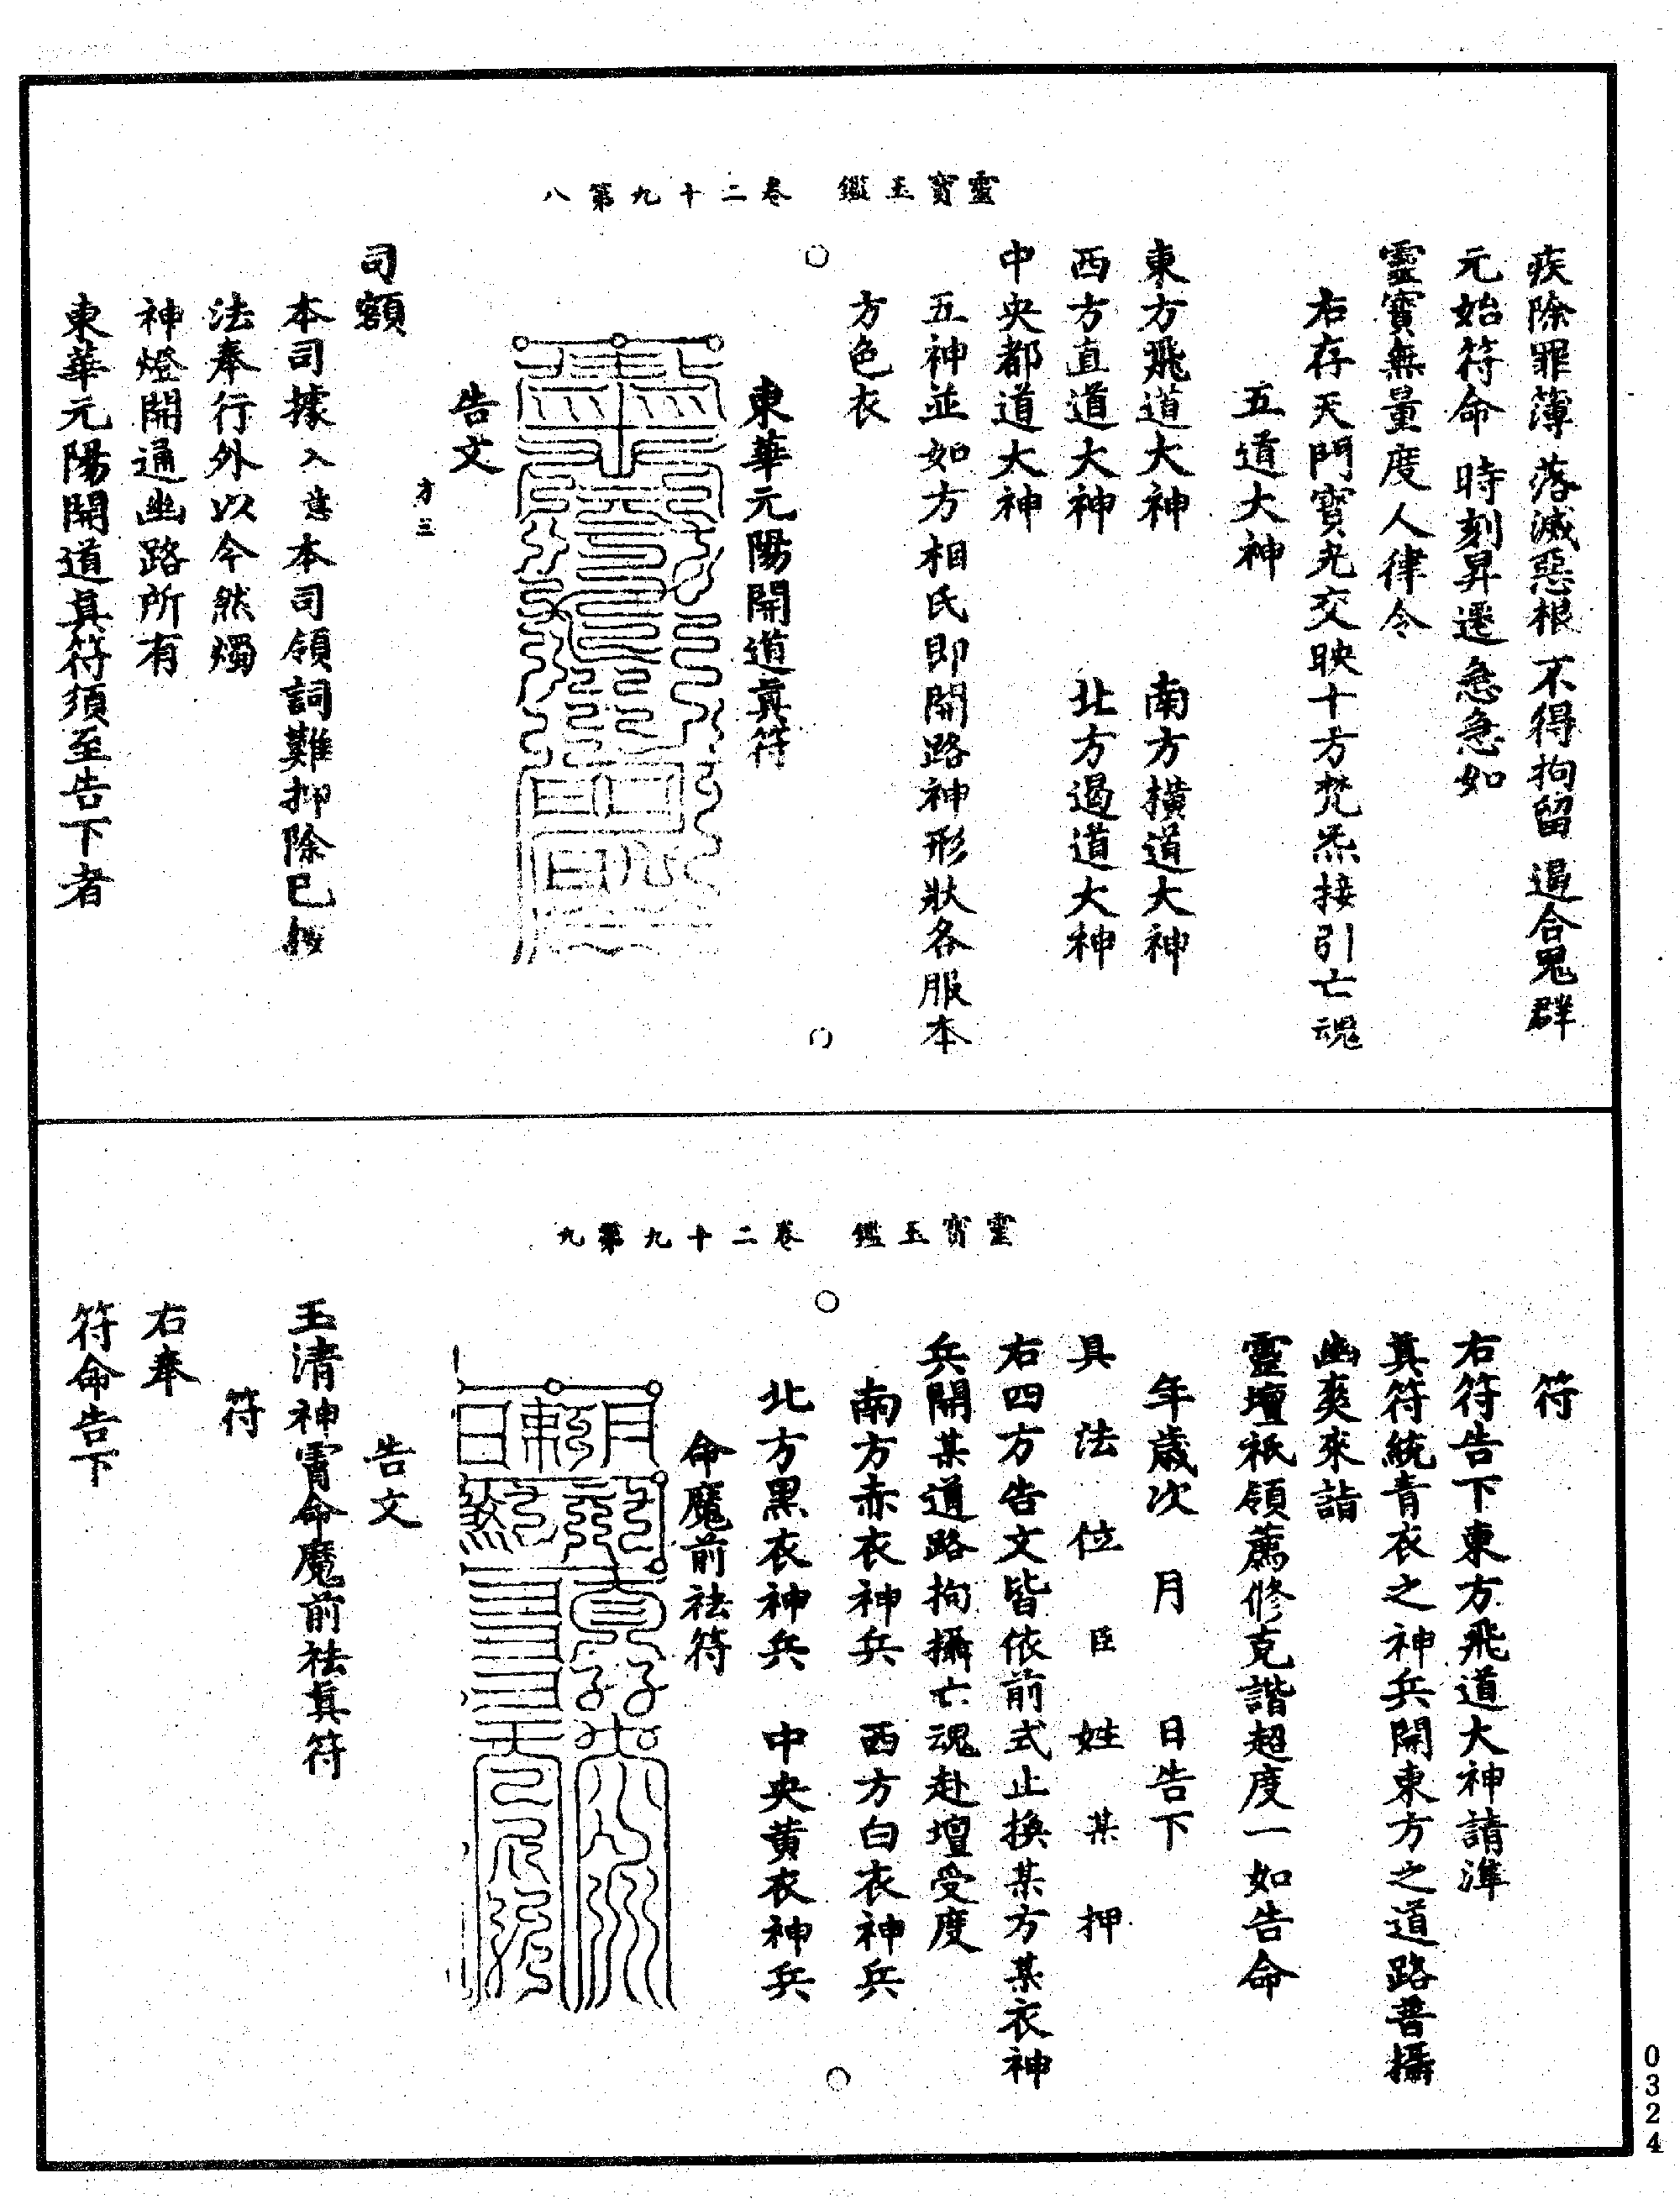 靈寶玉鑑　卷二十九第八
疾除罪簿　落滅惡根　不得拘留　逼合鬼群
元始符命　時刻昇遷　急急如
靈寶無量度人律令
右存天門寶光交映十方梵炁接引亡魂
五道大神
東方飛道大神　南方橫道大神
西方直道大神　北方遏道大神
中央都道大神
五神並如方相氏即開路神形狀各服本
方色衣
東華元陽開道真符
告文
司額
本司據入意本司領詞難抑除已
法奉行外以今然燭
神燈開通幽路所有
東華元陽開道真符須至告下者
靈寶玉鑑　卷二十九第九
符
右符告下東方飛道大神請準
真符統青衣之神兵開東方之道路普攝
幽爽來詣
靈壇祇領薦修克諧超度一如告命
年歲次　月　日告下
具法位臣姓某押
右四方告文皆依前式止換某方某衣神
兵開某道路拘攝亡魂赴壇受度
南方赤衣神兵　西方白衣神兵
北方黑衣神兵　中央黃衣神兵
命魔前祛符
告文
玉清神霄命魔前祛真符
符
右奉
符命告下
0324